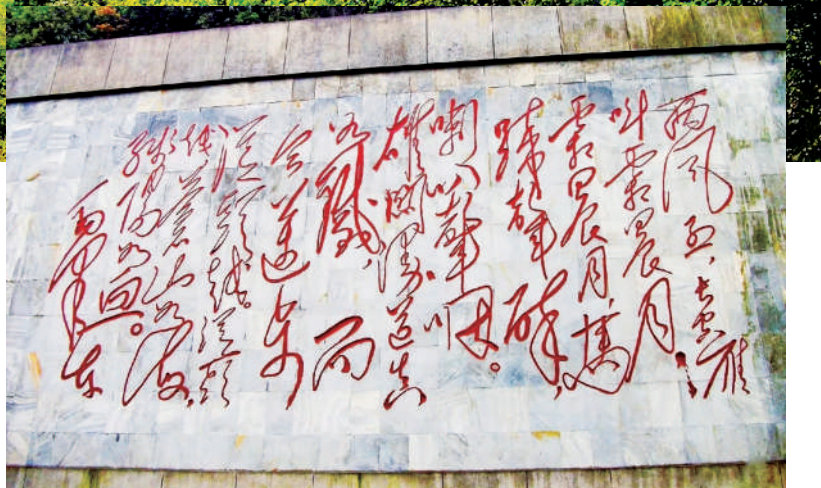 西风烈,长空雁
叫霜晨月。
霜晨月,馬
蹄聲碎,
喇叭聲咽。
雄關漫道真
如鐵,而
今邁步
從頭越。從頭
越,蒼山如海,
殘陽如血。
毛澤東